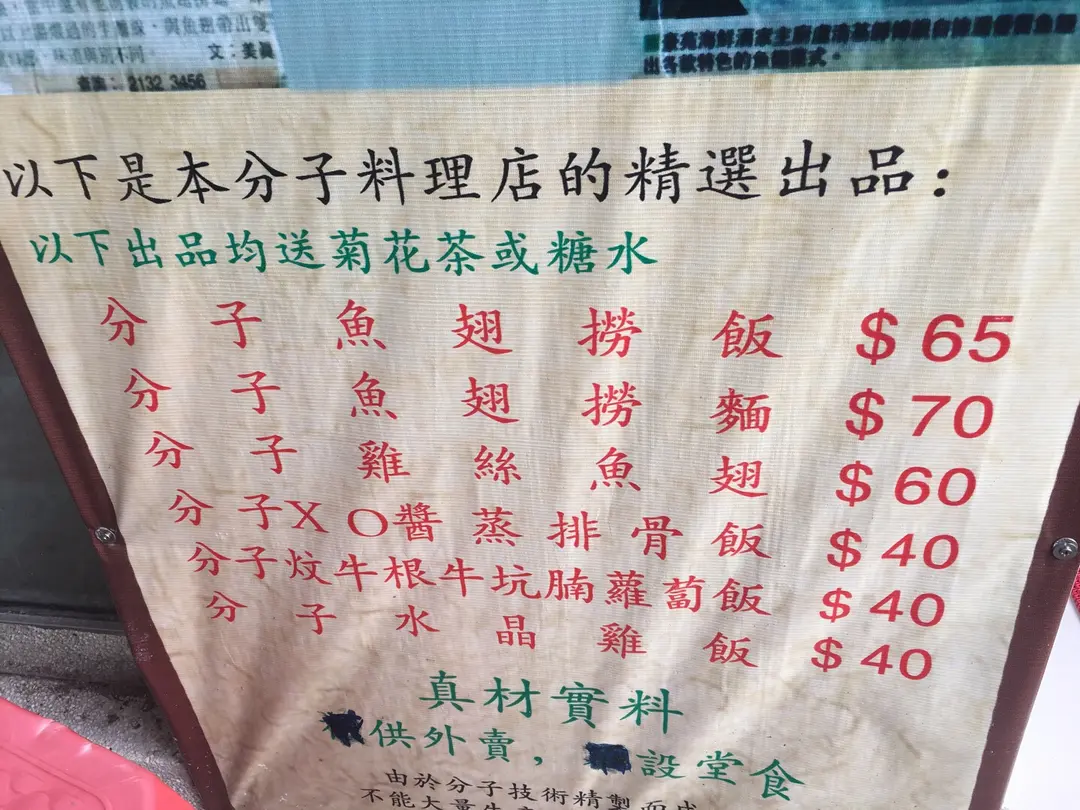 文：美真
查詢：2132 3456
出各款特色的魚翅菜式。
以下是本分子料理店的精選出品：
以下出品均送菊花茶或糖水
分子魚翅撈飯 $65
分子魚翅撈麵 $70
分子雞絲魚翅 $60
分子XO醬蒸排骨飯 $40
分子炆牛根牛坑腩蘿蔔飯 $40
分子水晶雞飯 $40
真材實料
供外賣，設堂食
由於分子技術精製而成
不能大量生產